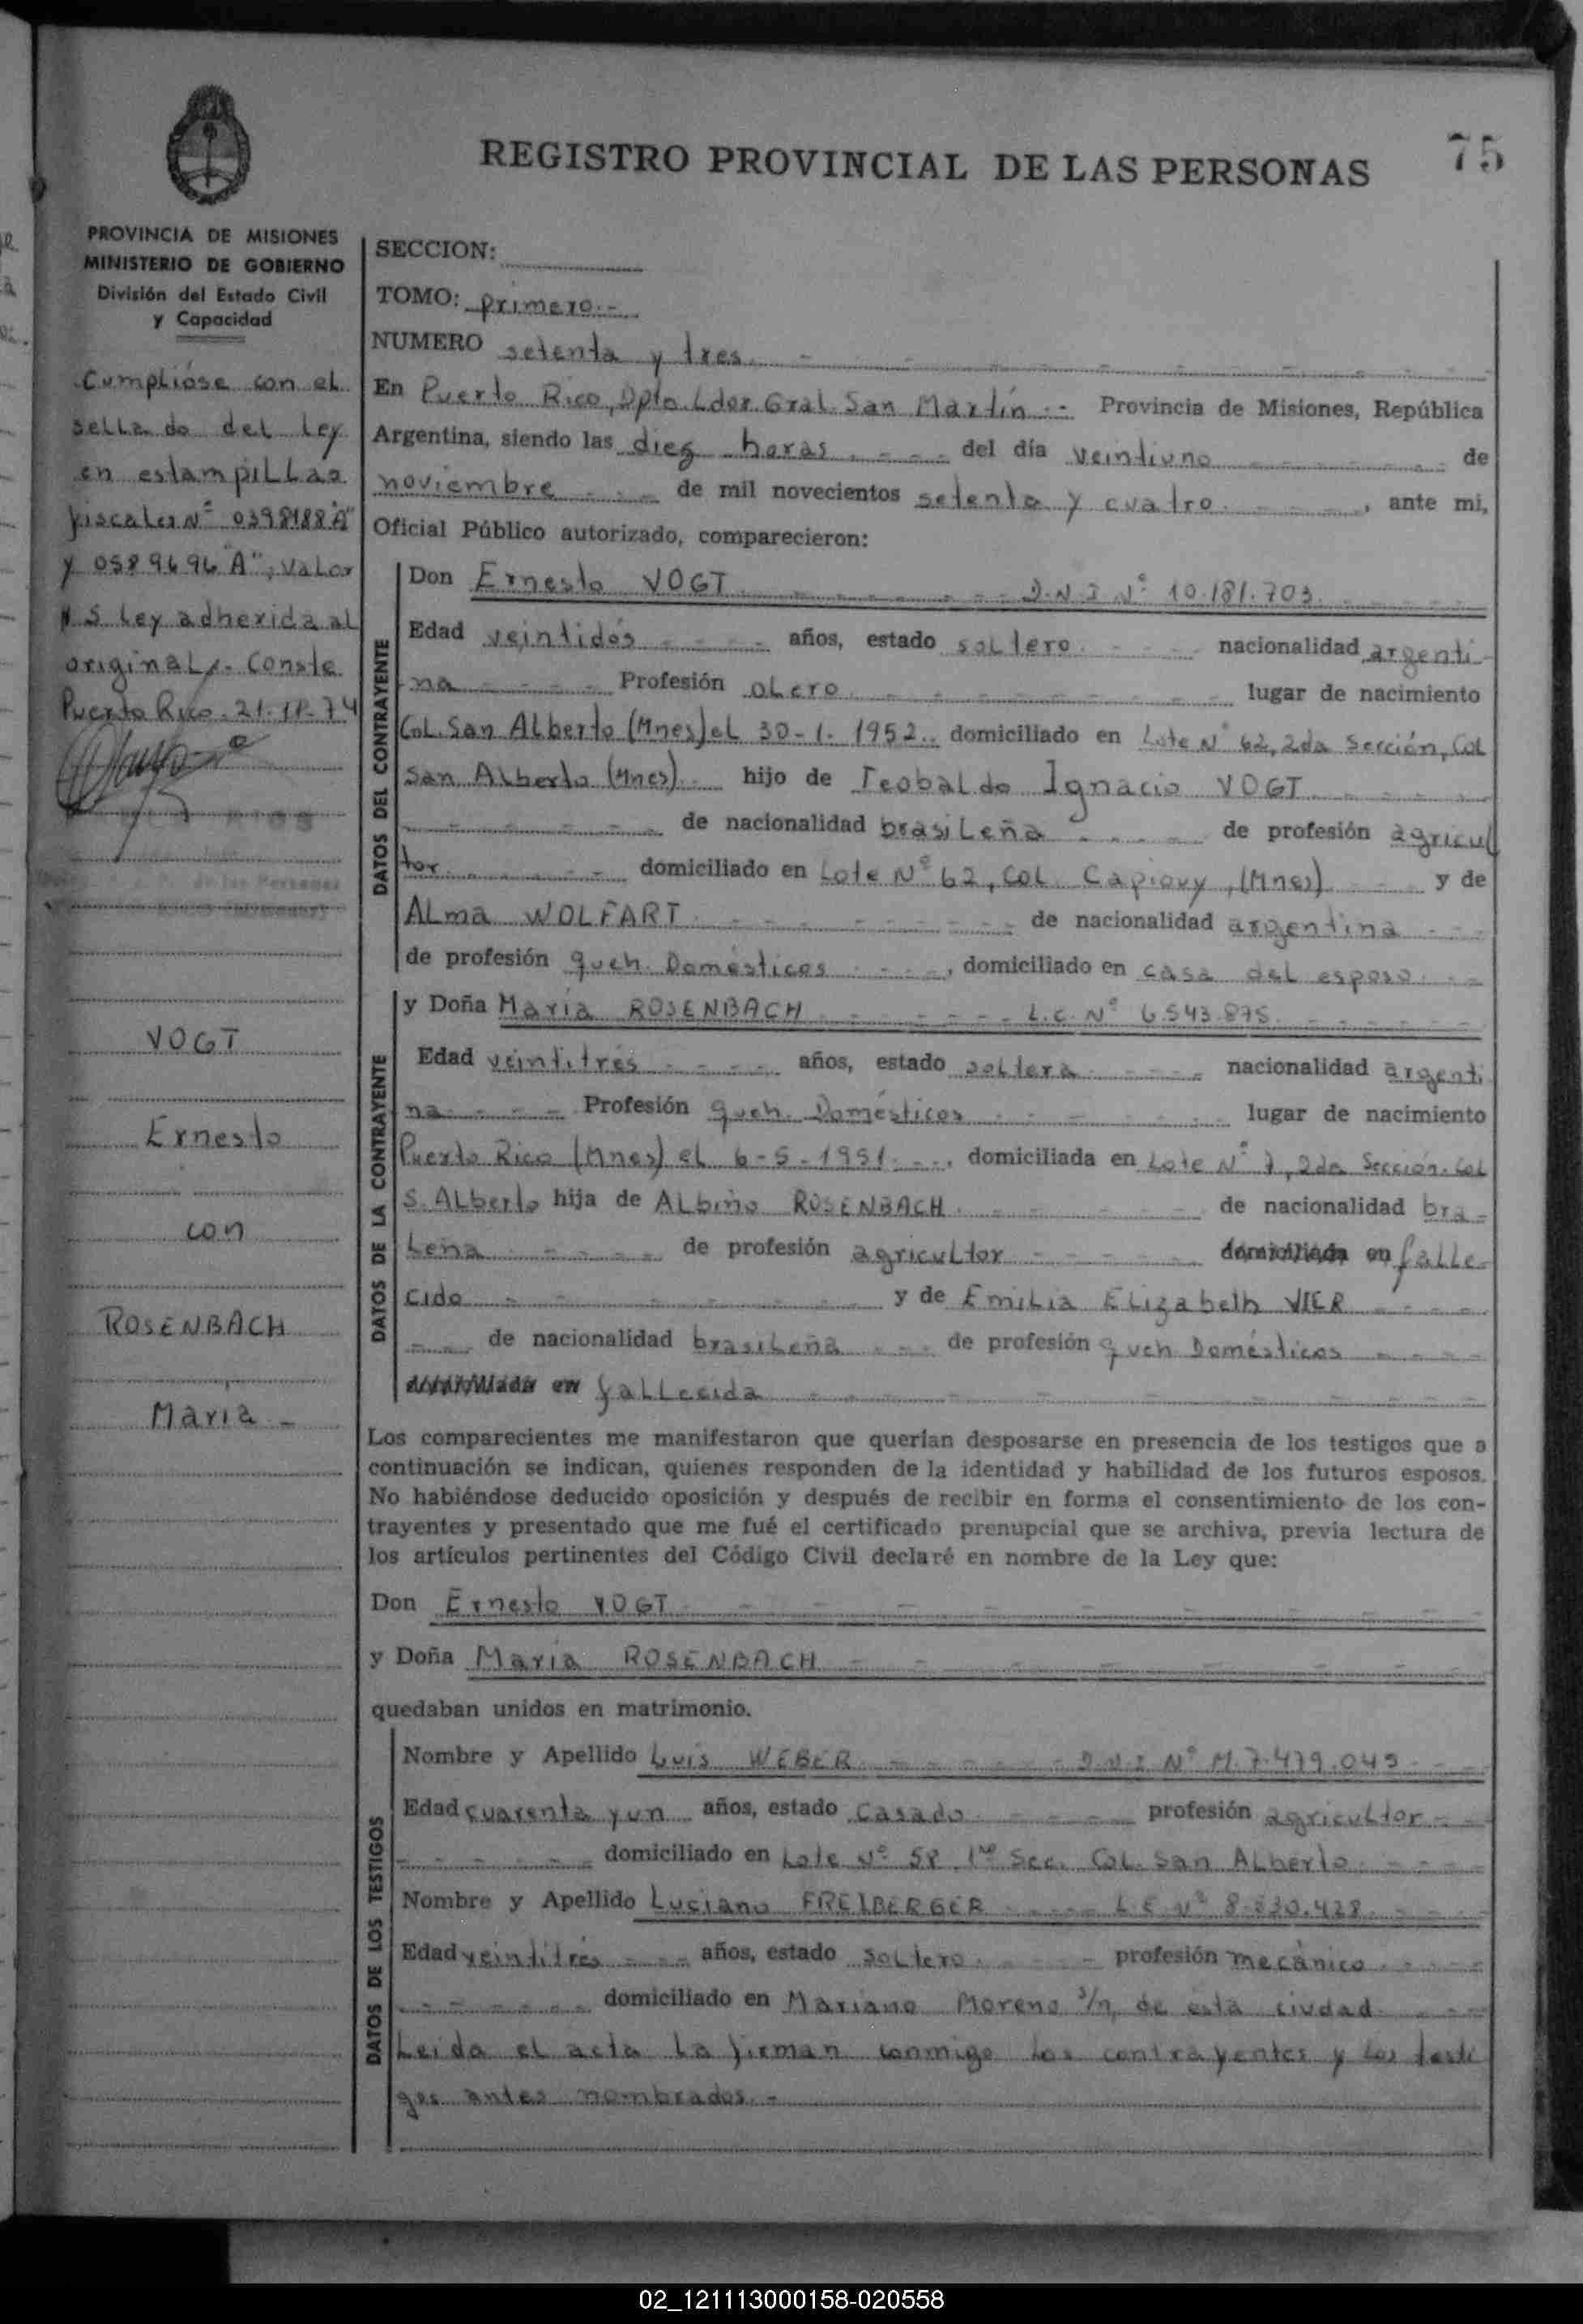 75
REGISTRO PROVINCIAL DE LAS PERSONAS
PROVINCIA DE MISIONES
MINISTERIO DE GOBIERNO
División del Estado Civil
y Capacidad
Cumplióse con el
sellado del ley
en estampillas
fiscales Nº 0398188"A"
y 0589696"A", valor
$ 5 ley adherida al
original.- Conste
Puerto Rico. 21.11-74
VOGT
Ernesto
con
ROSENBACH
María -
SECCION:
TOMO: primero.-
NUMERO setenta y tres. -
En Puerto Rico, Dpto. Ldor. Gral. San Martín.- Provincia de Misiones, República
Argentina, siendo las diez horas. - - - del día veintiuno - - - de
noviembre - - - de mil novecientos setenta y cuatro. - - -, ante mi,
Oficial Público autorizado, comparecieron:
DATOS DEL CONTRAYENTE
Don Ernesto VOGT - - - D.N.I Nº 10.181.703. - - -
Edad veintidós - - - años, estado soltero. - - - nacionalidad argenti-
na - - - Profesión obrero. - - - lugar de nacimiento
Col. San Alberto (Mnes) el 30-1-1952.. domiciliado en Lote Nº 62, 2da Sección, Col
San Alberto (Mnes).. hijo de Teobaldo Ignacio VOGT - - -
- - - de nacionalidad brasileña - - - de profesión agricul
tor. - - - domiciliado en Lote Nº 62, Col. Capiovy, (Mnes) - - - y de
Alma WOLFART. - - - de nacionalidad argentina - - -
de profesión queh. Domésticos - - -, domiciliado en casa del esposo. - -
DATOS DE LA CONTRAYENTE
y Doña María ROSENBACH - - - L.C. Nº 6.543.875. - - -
Edad veintitrés - - - años, estado soltera - - - nacionalidad argenti
na - - - Profesión queh. Domésticos - - - lugar de nacimiento
Puerto Rico (Mnes) el 6-5-1951. - - -, domiciliada en Lote Nº 7, 2da Sección. Col
S. Alberto hija de Albino ROSENBACH. - - - de nacionalidad bra-
leña - - - de profesión agricultor - - - domiciliada en falle-
cido - - - y de Emilia Elizabeth VIER - - -
- - - de nacionalidad brasileña - - - de profesión queh Domésticos - - -
domiciliada en fallecida - - -
Los comparecientes me manifestaron que querían desposarse en presencia de los testigos que a
continuación se indican, quienes responden de la identidad y habilidad de los futuros esposos.
No habiéndose deducido oposición y después de recibir en forma el consentimiento de los con-
trayentes y presentado que me fué el certificado prenupcial que se archiva, previa lectura de
los artículos pertinentes del Código Civil declaré en nombre de la Ley que:
Don Ernesto VOGT. - - -
y Doña María ROSENBACH - - -
quedaban unidos en matrimonio.
DATOS DE LOS TESTIGOS
Nombre y Apellido Luis WEBER. - - - D.N.I Nº M.7.479.045 - - -
Edad cuarenta y un años, estado casado - - - profesión agricultor - -
- - - domiciliado en Lote Nº 58, 1ra Sec. Col. San Alberto. - - -
Nombre y Apellido Luciano FREIBERGER - - - L.E. Nº 8.530.428. - - -
Edad veintitrés - - - años, estado soltero. - - - profesión mecánico. - - -
- - - domiciliado en Mariano Moreno s/n, de esta ciudad. - - -
Leida el acta la firman conmigo los contrayentes y los testi
gos antes nombrados.-
02_121113000158-020558